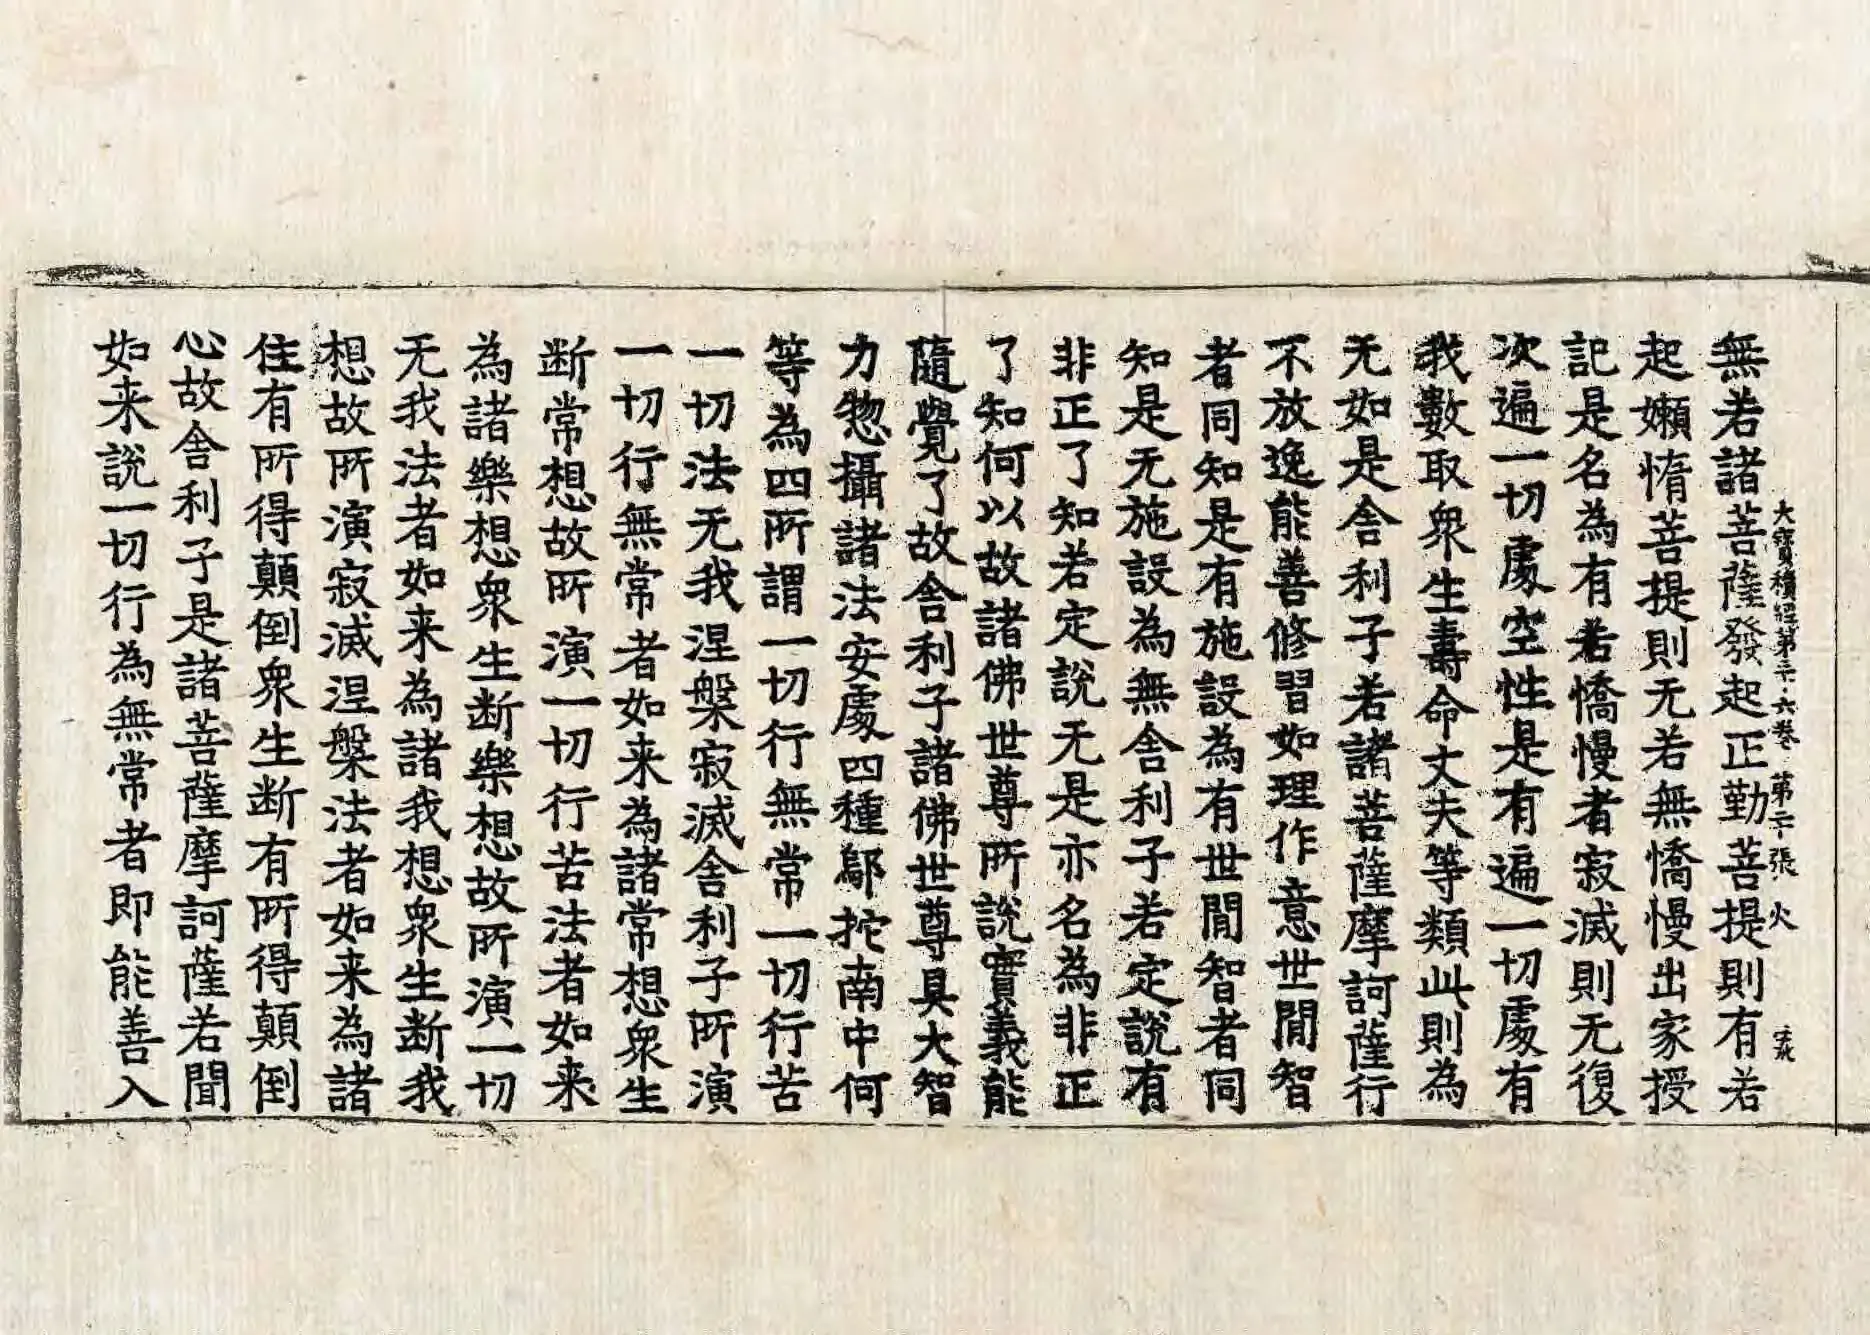 大寶積經第三十六卷 第二十張 火
無若諸菩薩發起正勤菩提則有若
起嬾惰菩提則无若無憍慢出家授
記是名為有若憍慢者寂滅則无復
次遍一切處空性是有遍一切處有
我數取衆生壽命丈夫等類此則為
无如是舎利子若諸菩薩摩訶薩行
不放逸能善修習如理作意世間智
者同知是有施設為有世間智者同
知是无施設為無舎利子若定說有
非正了知若定說无是亦名為非正
了知何以故諸佛世尊所說實義能
隨覺了故舎利子諸佛世尊具大智
力惣攝諸法安處四種鄔拕南中何
等為四所謂一切行無常一切行苦
一切法无我涅槃寂滅舎利子所演
一切行無常者如来為諸常想衆生
断常想故所演一切行苦法者如来
為諸樂想衆生断樂想故所演一切
无我法者如来為諸我想衆生断我
想故所演寂滅涅槃法者如来為諸
住有所得顛倒衆生断有所得顛倒
心故舎利子是諸菩薩摩訶薩若聞
如来說一切行為無常者即能善入